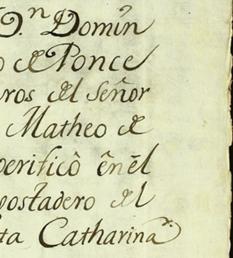 D.ⁿ Domin
o de Ponce
ros del señor
Matheo de
verificò en el
postadero del
ta Catharina